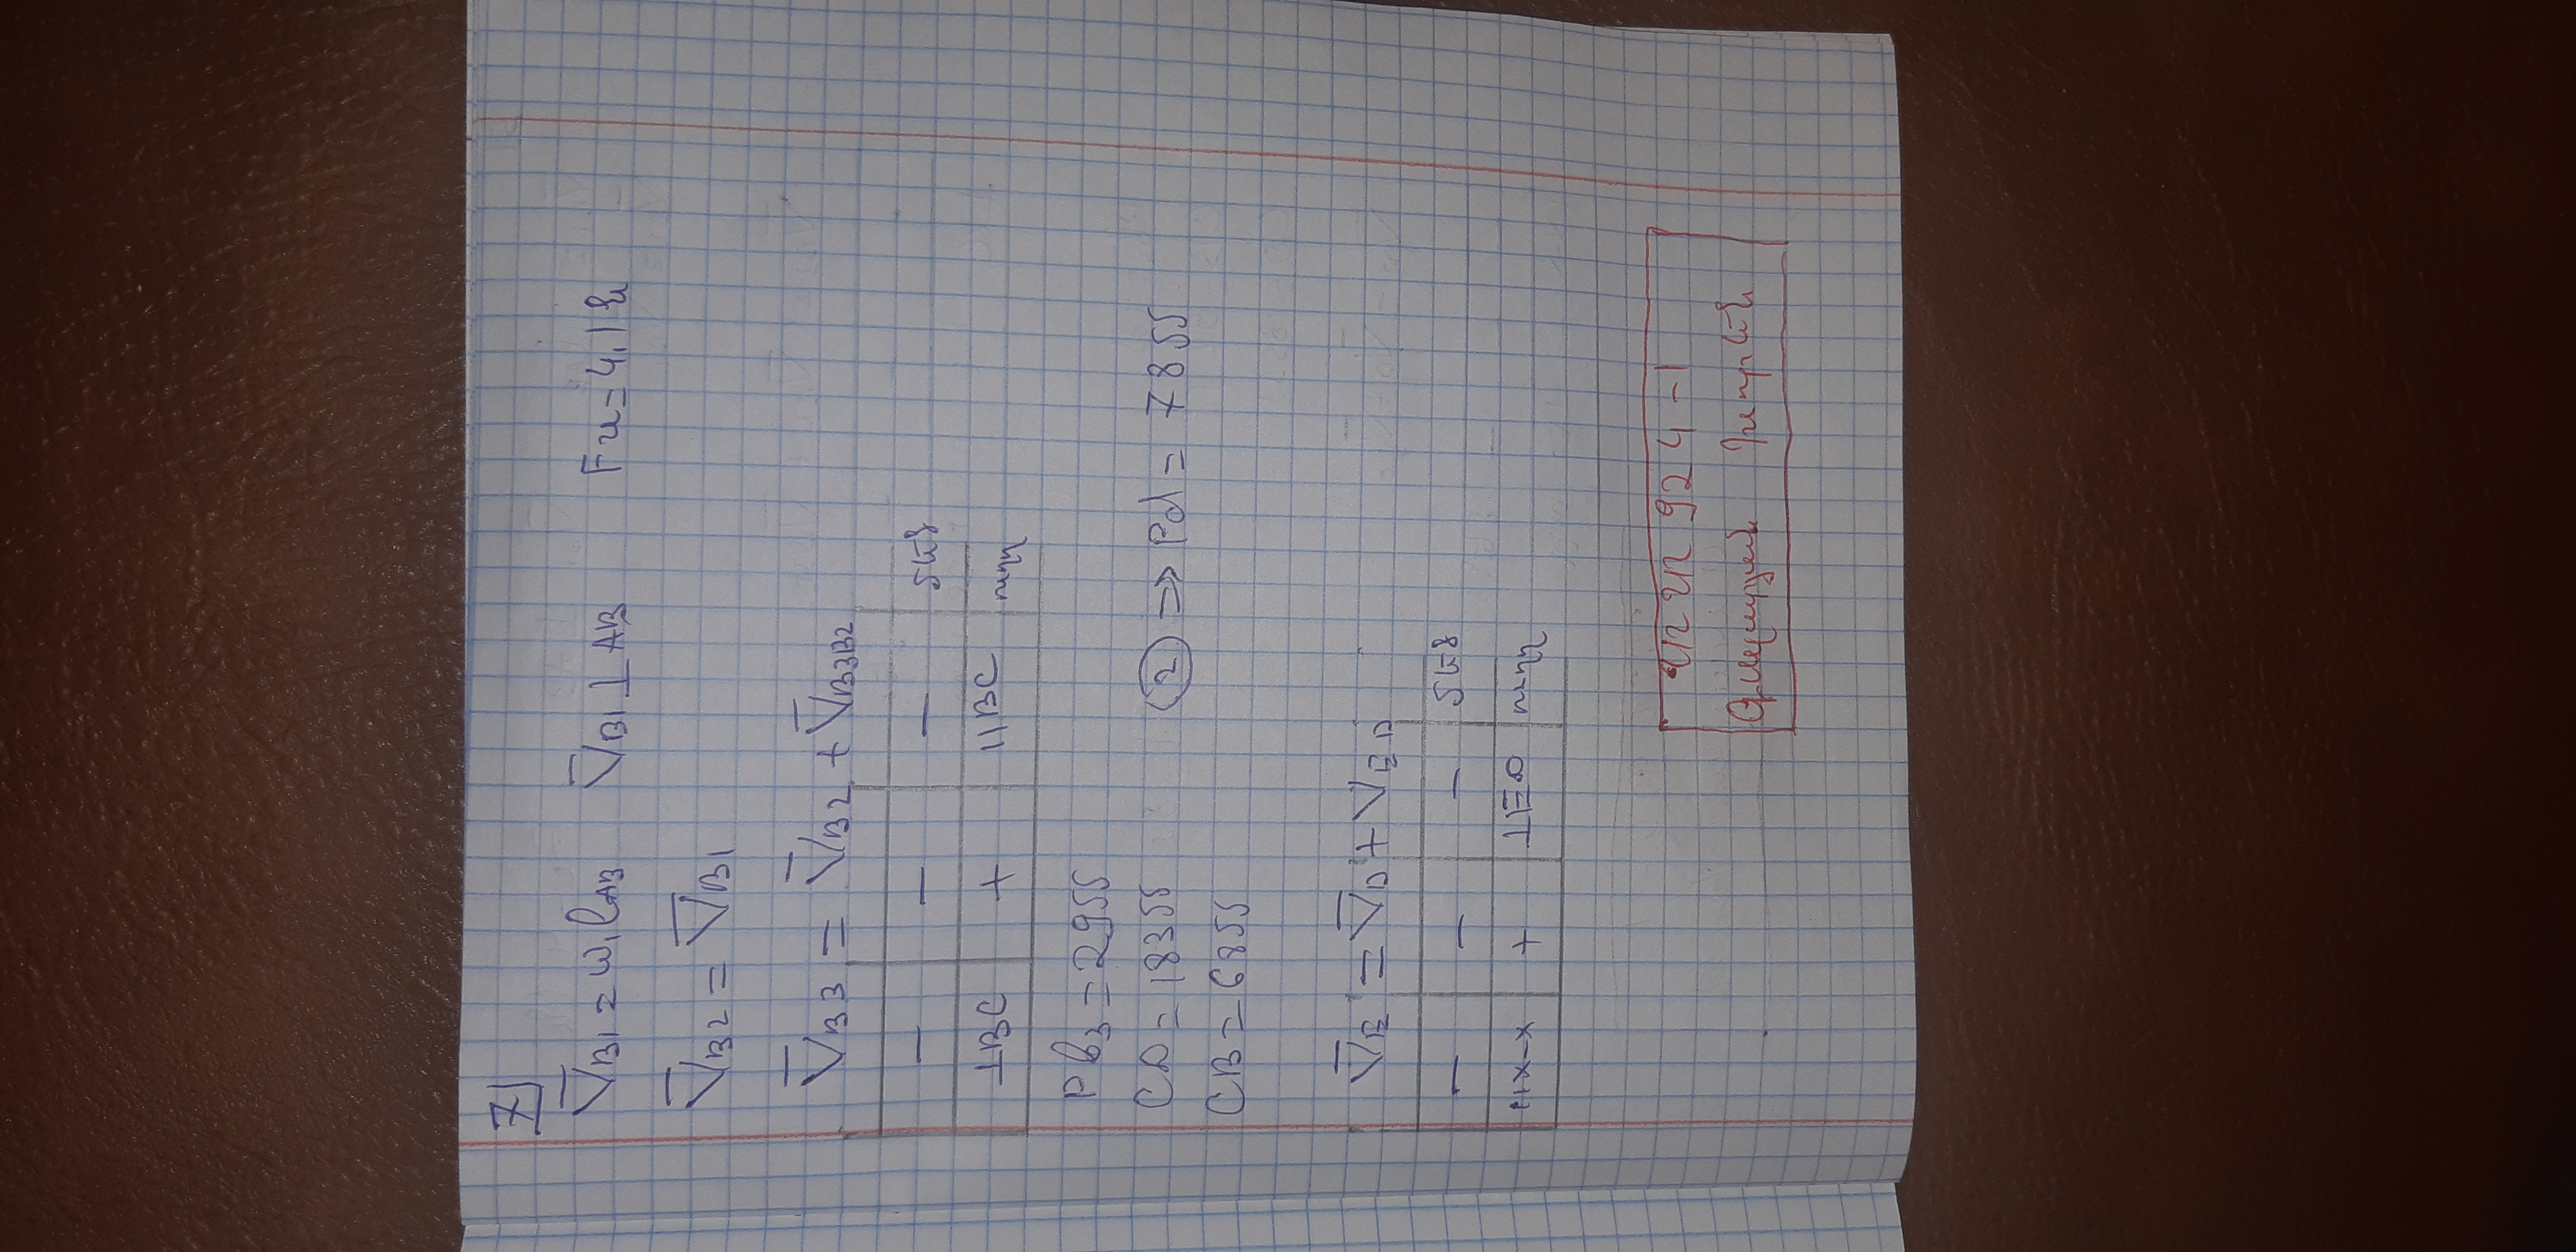 7)
V̅B1 = ω1 lAB V̅B1 ⊥ AB Fu = 4,1 հ
V̅B2 = V̅B1
V̅B3 = V̅B2 + V̅B3B2
— — —
⊥BC + ||BC ուղղ
Pb3 = 29 մմ
CD = 183 մմ ② ⇒ Pd = 78 մմ
CB = 68 մմ
V̅E = V̅D + VED
— — —
||x-x + ⊥ED ուղղ
924-1